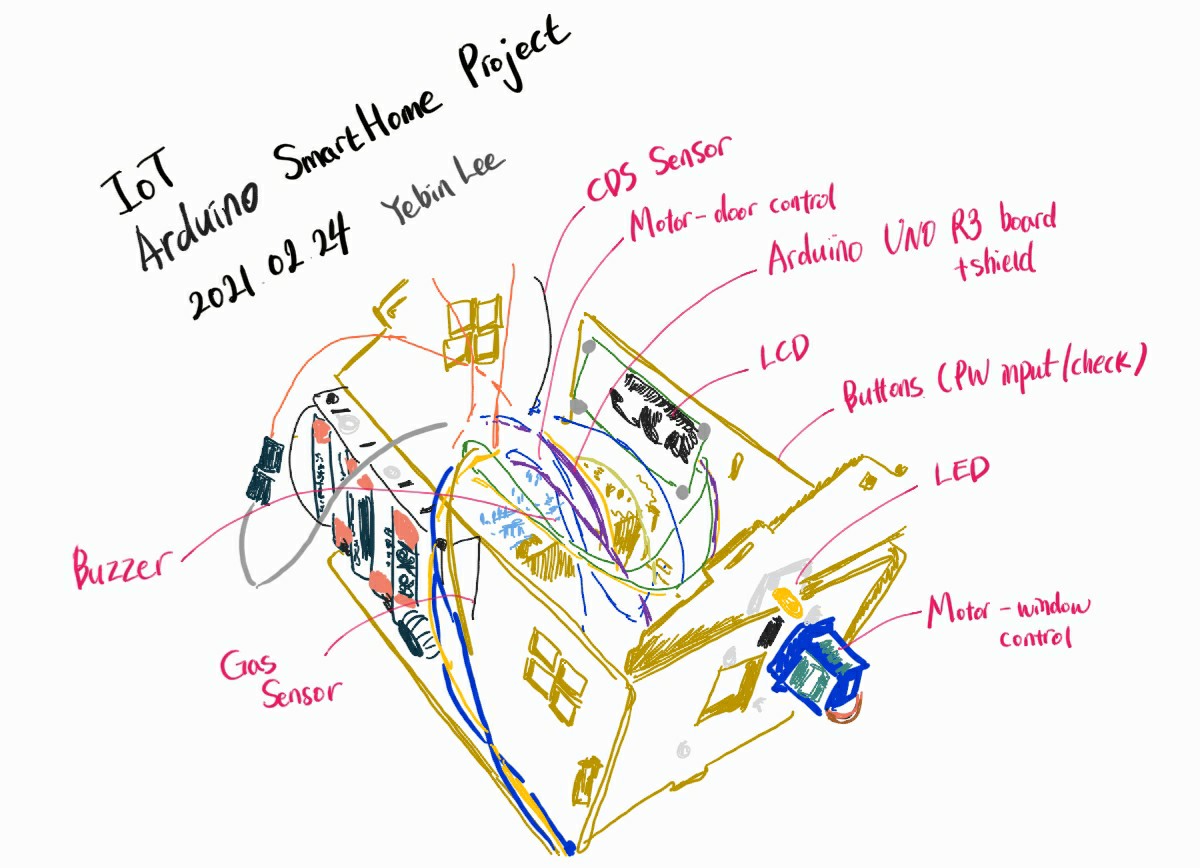 IoT
Arduino SmartHome Project
2021.02.24 Yebin Lee
CDS Sensor
Motor-door control
Arduino UNO R3 board
+shield
LCD
Buttons (PW input/check)
LED
Motor-window
control
Buzzer
Gas
Sensor